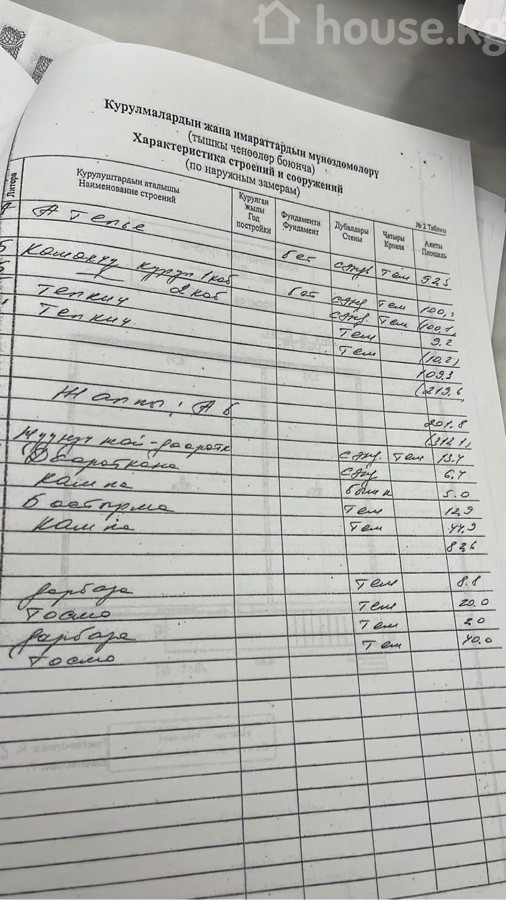 house.kg
Курулмалардын жана имараттардын мүнөздөмөлөрү
(тышкы ченөөлөр боюнча)
Характеристика строений и сооружений
(по наружным замерам)
№ 2 Таблица
Литера
Курулуштардын аталышы
Наименование строений
Курулган жылы
Год постройки
Фундаменти
Фундамент
Дубалдары
Стены
Чатыры
Кровля
Аянты
Площадь
Ателье бет Тем 92.5
1 каб бет Тем 100,
2 каб Тем (100,1
Тепкич Тем 9.2
Тепкич Тем (10,2)
109,3
(219,6
Жалпы: А Б 201.8
(312.1)
Тем 13.4
Даараткана 6,4
Кампа 5.0
Бастырма Тем 12,9
Кампа Тем 44,9
82,6
дарбаза Тем 8.8
Тосмо Тем 20.0
дарбаза Тем 2.0
Тосмо Тем 40.0